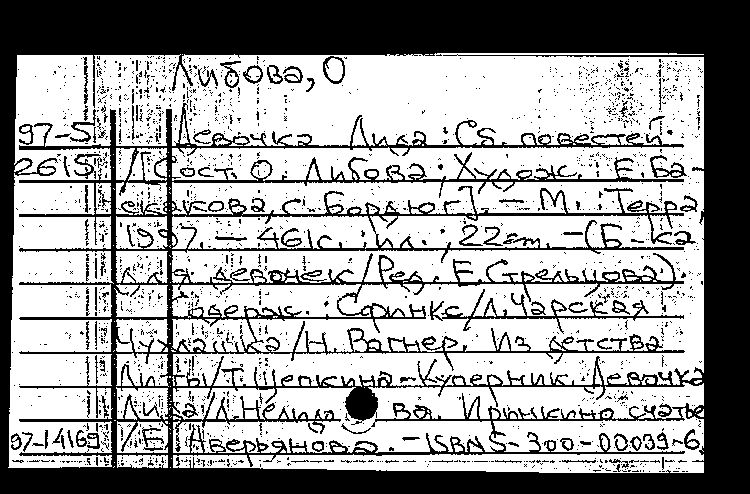 Либова, О
97-5 Девочка Лида : Сб. повестей.
2615 /[Сост. О. Либова ; Худож. : Е. Ба-
скакова, С. Бордюг]. — М. : Терра,
1997. — 461с. : ил. ; 22см. — (Б-ка
для девочек/Ред. Е. Стрельцова).
Содерж. : Сфинкс/Л. Чарская.
Чухлашка/Н. Вагнер. Из детства
Литы/Т. Щепкина-Куперник. Девочка
Лида/Л. Нелидова. Иринкино счатье
97-14169 /Е. Аверьянова. — ISBN 5-300-00099-6